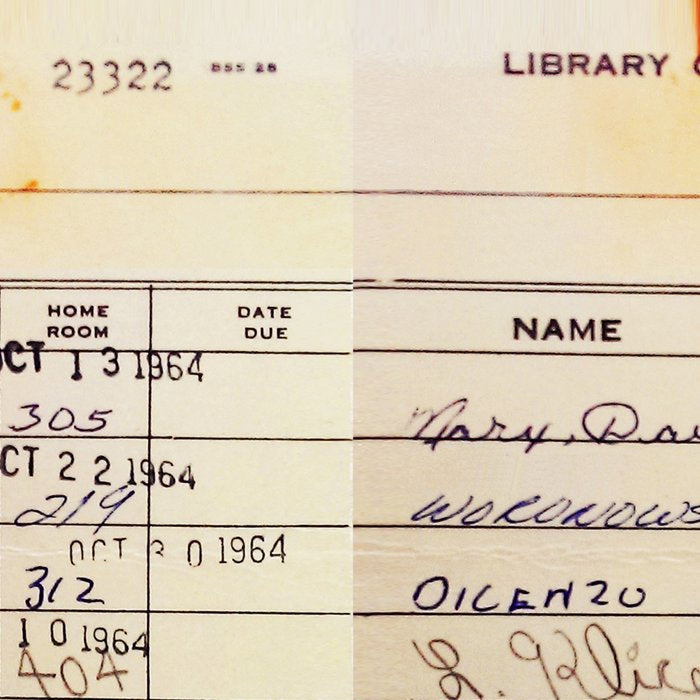 23322 BSS 28
LIBRARY
HOME ROOM
DATE DUE
NAME
OCT 13 1964
305
Mary, Da
OCT 22 1964
219
WORONOWS
OCT 30 1964
312
DICENZO
10 1964
404
L.